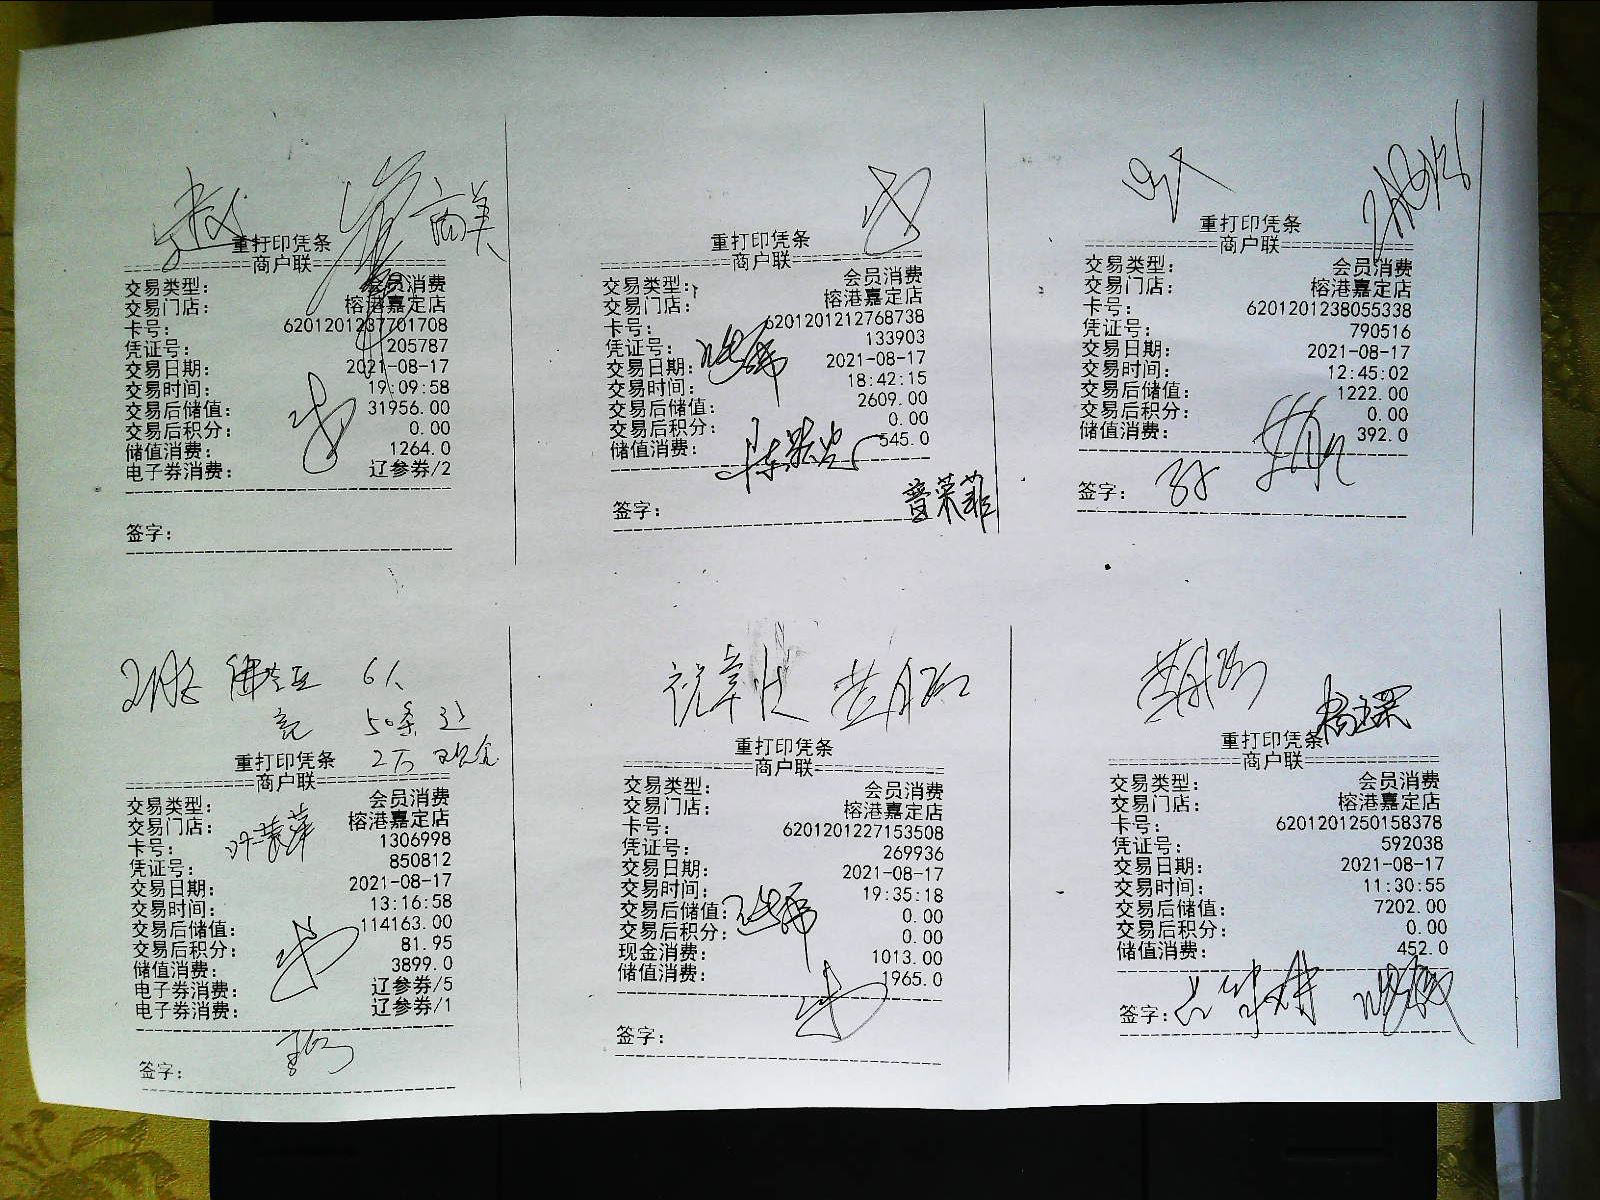 重打印凭条
商户联
交易类型： 会员消费
交易门店： 榕港嘉定店
卡号： 6201201237701708
凭证号： 205787
交易日期： 2021-08-17
交易时间： 19:09:58
交易后储值： 31956.00
交易后积分： 0.00
储值消费： 1264.0
电子券消费： 辽参券/2
签字：
重打印凭条
商户联
交易类型： 会员消费
交易门店： 榕港嘉定店
卡号： 6201201212768738
凭证号： 133903
交易日期： 2021-08-17
交易时间： 18:42:15
交易后储值： 2609.00
交易后积分： 0.00
储值消费： 545.0
签字：
重打印凭条
商户联
交易类型： 会员消费
交易门店： 榕港嘉定店
卡号： 6201201238055338
凭证号： 790516
交易日期： 2021-08-17
交易时间： 12:45:02
交易后储值： 1222.00
交易后积分： 0.00
储值消费： 392.0
签字：
6人
50条
2万
重打印凭条
商户联
交易类型： 会员消费
交易门店： 榕港嘉定店
卡号： 1306998
凭证号： 850812
交易日期： 2021-08-17
交易时间： 13:16:58
交易后储值： 114163.00
交易后积分： 81.95
储值消费： 3899.0
电子券消费： 辽参券/5
电子券消费： 辽参券/1
签字：
重打印凭条
商户联
交易类型： 会员消费
交易门店： 榕港嘉定店
卡号： 6201201227153508
凭证号： 269936
交易日期： 2021-08-17
交易时间： 19:35:18
交易后储值： 0.00
交易后积分： 0.00
现金消费： 1013.00
储值消费： 1965.0
签字：
重打印凭条
商户联
交易类型： 会员消费
交易门店： 榕港嘉定店
卡号： 6201201250158378
凭证号： 592038
交易日期： 2021-08-17
交易时间： 11:30:55
交易后储值： 7202.00
交易后积分： 0.00
储值消费： 452.0
签字：